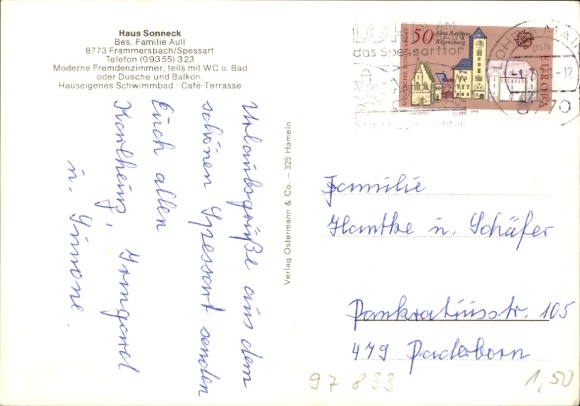 Haus Sonneck
Bes. Familie Aull
8773 Frammersbach/Spessart
Telefon (0 93 55) 323
Moderne Fremdenzimmer, teils mit WC u. Bad
oder Dusche und Balkon.
Hauseigenes Schwimmbad - Café-Terrasse
Urlaubsgrüße aus dem
schönen Spessart senden
Euch allen
Karlheinz, Irmgard
u. Simone.
Verlag Ostermann & Co. – 325 Hameln
LOHR AM
das Spessarttor
50
Altes Rathaus
Regensburg
EUROPA
8770
Familie
Hantke u. Schäfer
Pankratiusstr. 105
479 Paderborn
97 833
1,50